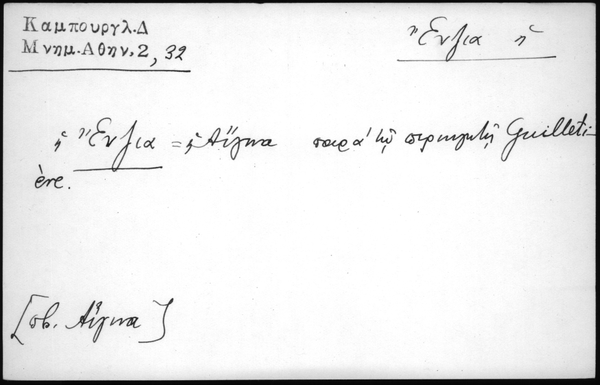 Καμπουργλ.Δ
Μνημ.Αθην.2, 32
Ἔνγια ἡ
ἡ Ἔνγια = ἡ Αἴγινα παρὰ τῷ περιηγητῇ Guilleti-
ère.
[πβ. Αἴγινα]